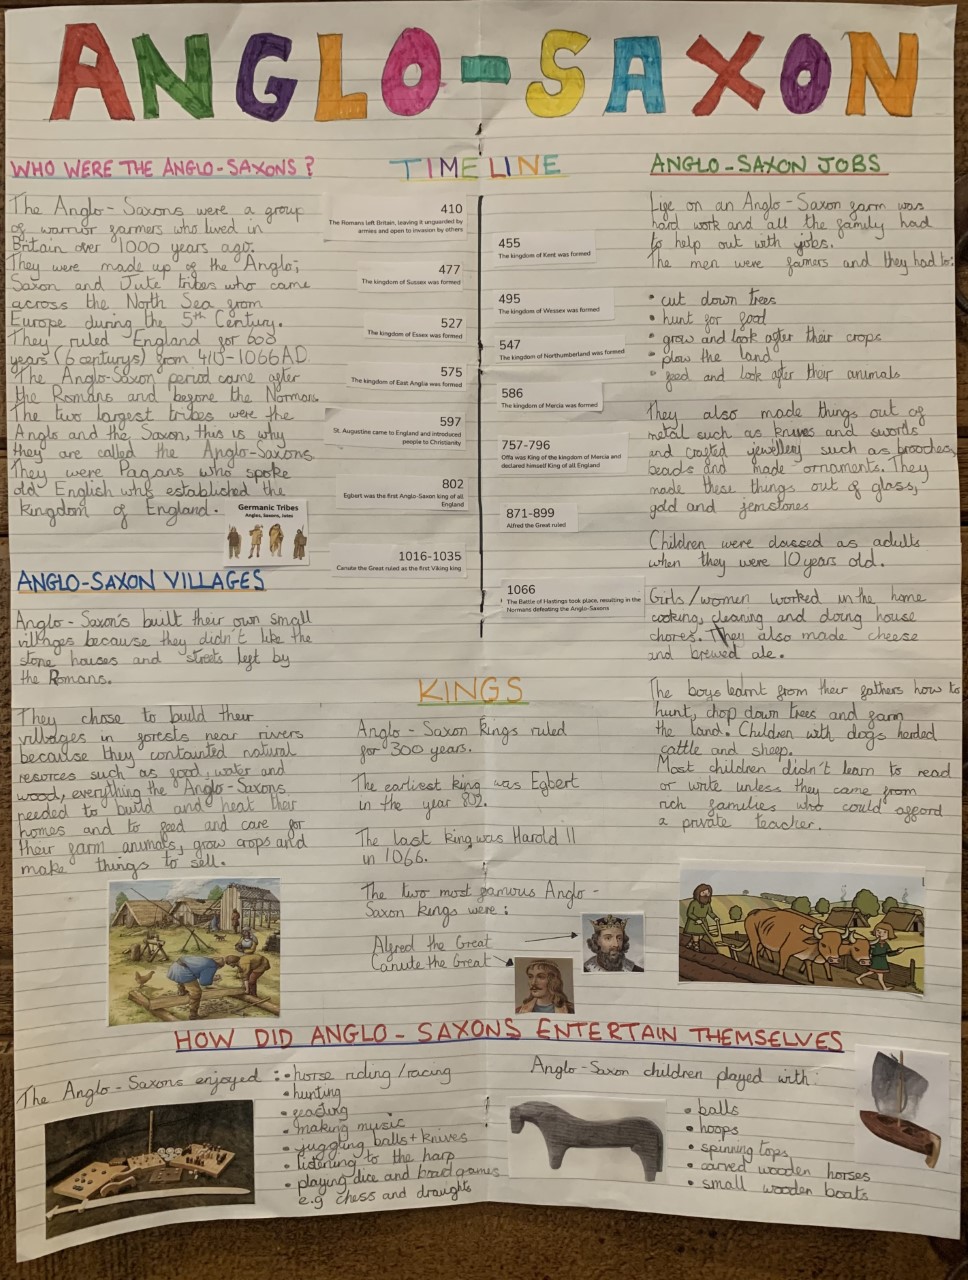 ANGLO-SAXON
WHO WERE THE ANGLO-SAXONS?
The Anglo-Saxons were a group
of warrior farmers who lived in
Britain over 1000 years ago.
They were made up of the Anglo,
Saxon and Jute tribes who came
across the North Sea from
Europe during the 5th Century.
They ruled England for 600
years (6 centurys) from 410-1066AD.
The Anglo-Saxon period came after
the Romans and before the Normans
The two largest tribes were the
Anglo and the Saxon, this is why
they are called the Anglo-Saxons.
They were Pagans who spoke
old English whys established the
kingdom of England.
Germanic Tribes
Angles, Saxons, Jutes
ANGLO-SAXON VILLAGES
Anglo-Saxon's built their own small
villages because they didn't like the
stone houses and streets left by
the Romans.
They chose to build their
villages in forests near rivers
because they contained natural
resorces such as food, water and
wood, everything the Anglo-Saxons
needed to build and heat their
homes and to feed and care for
their farm animals, grow crops and
make things to sell.
TIMELINE
410
The Romans left Britain, leaving it unguarded by
armies and open to invasion by others
455
The kingdom of Kent was formed
477
The kingdom of Sussex was formed
495
The kingdom of Wessex was formed
527
The kingdom of Essex was formed
547
The kingdom of Northumberland was formed
575
The kingdom of East Anglia was formed
586
The kingdom of Mercia was formed
597
St. Augustine came to England and introduced
people to Christianity
757-796
Offa was King of the kingdom of Mercia and
declared himself King of all England
802
Egbert was the first Anglo-Saxon king of all
England
871-899
Alfred the Great ruled
1016-1035
Canute the Great ruled as the first Viking king
1066
The Battle of Hastings took place, resulting in the
Normans defeating the Anglo-Saxons
KINGS
Anglo-Saxon Kings ruled
for 300 years.
The earliest king was Egbert
in the year 802.
The last king was Harold II
in 1066.
The two most famous Anglo-
Saxon kings were:
Alfred the Great
Canute the Great
ANGLO-SAXON JOBS
Life on an Anglo-Saxon farm was
hard work and all the family had
to help out with jobs.
The men were farmers and they had to:
• cut down trees
• hunt for food
• grow and look after their crops
• plow the land
• feed and look after their animals
They also made things out of
metal such as knives and swords
and crafted jewellery such as brooches,
beads and made ornaments. They
made these things out of glass,
gold and jemstones
Children were classed as adults
when they were 10 years old.
Girls/women worked in the home
cooking, cleaning and doing house
chores. They also made cheese
and brewed ale.
The boys learnt from their fathers how to
hunt, chop down trees and farm
the land. Children with dogs herded
cattle and sheep.
Most children didn't learn to read
or write unless they came from
rich families who could afford
a private teacher.
HOW DID ANGLO-SAXONS ENTERTAIN THEMSELVES
The Anglo-Saxons enjoyed :
• horse riding/racing
• hunting
• feasting
• making music
• juggling balls + knives
• listening to the harp
• playing dice and board games
e.g chess and draughts
Anglo-Saxon children played with:
• balls
• hoops
• spinning tops
• carved wooden horses
• small wooden boats